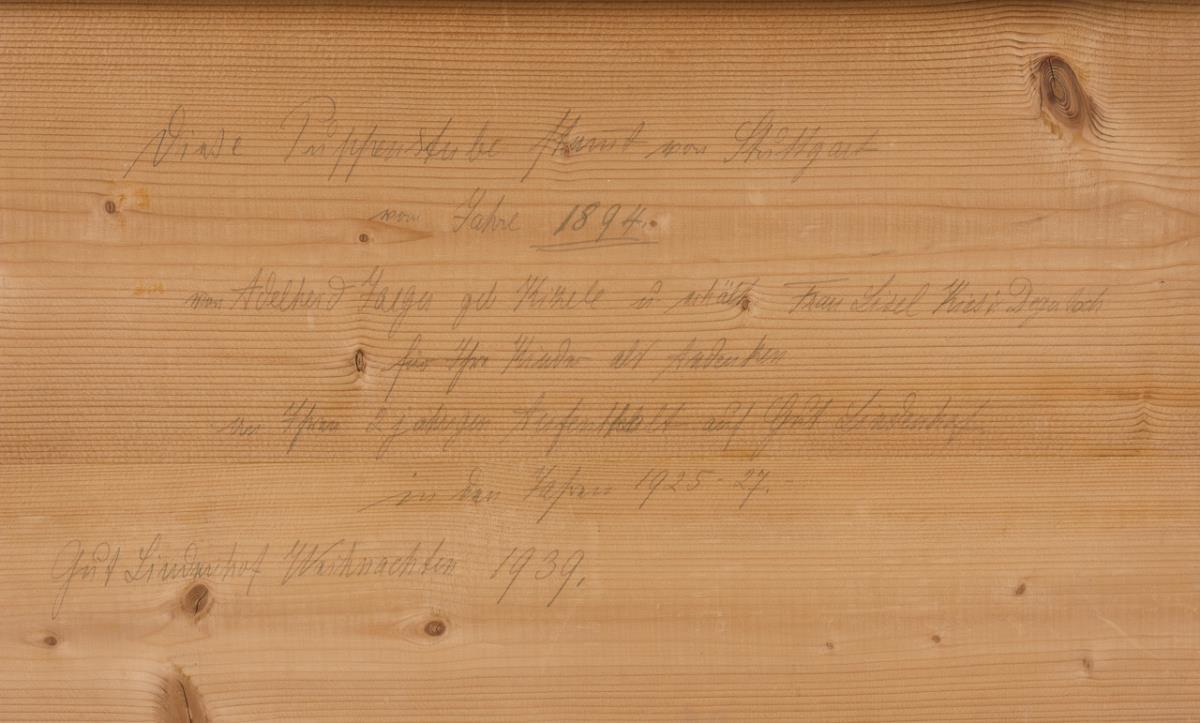 Diese Puppenstube stamt von Stuttgart
vom Jahre 1894.
von Adelheid Jaeger geb u erhält Frau Liesel Degerloch
für Ihre Kinder als Andenken
an Ihren 2 jährigen Aufenthalt auf Gut Lindenhof
in den Jahren 1925-27.-
Gut Lindenhof Weihnachten 1939.